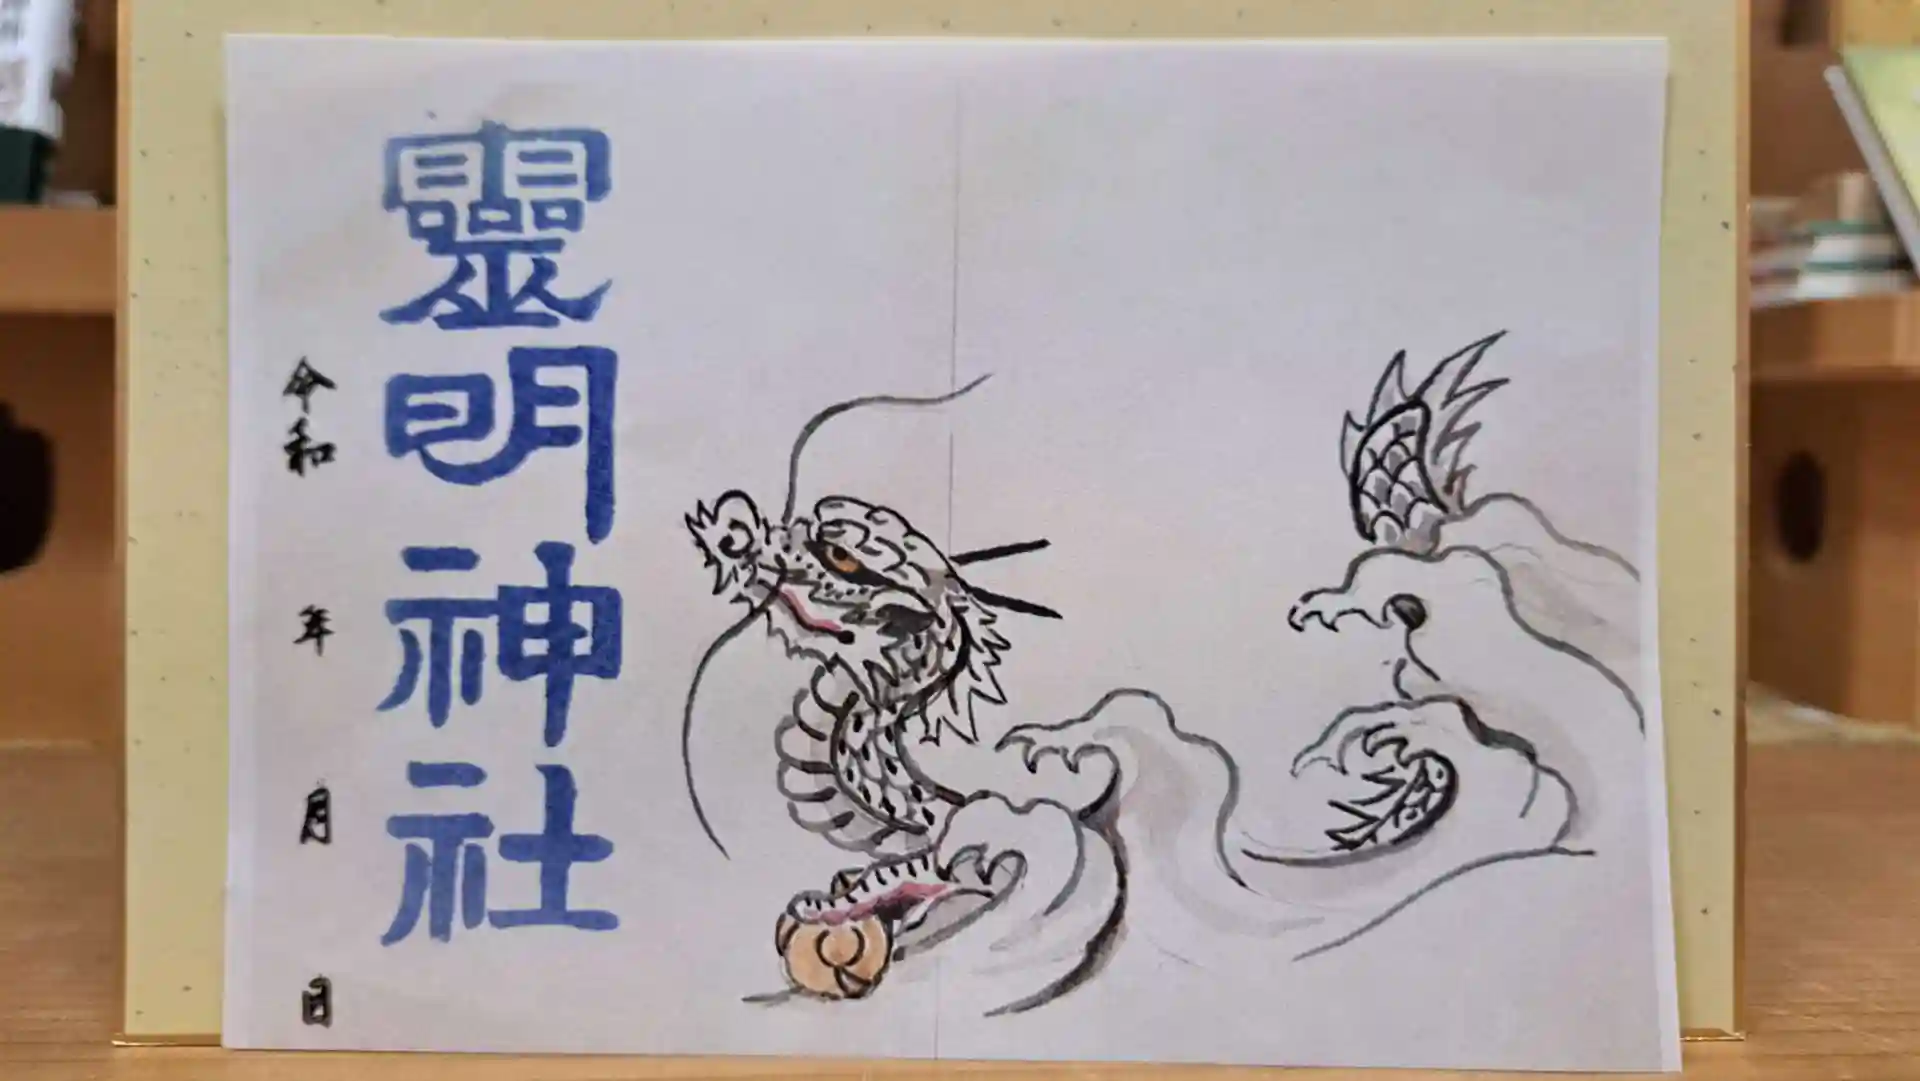 靈明神社
令和　年　月　日